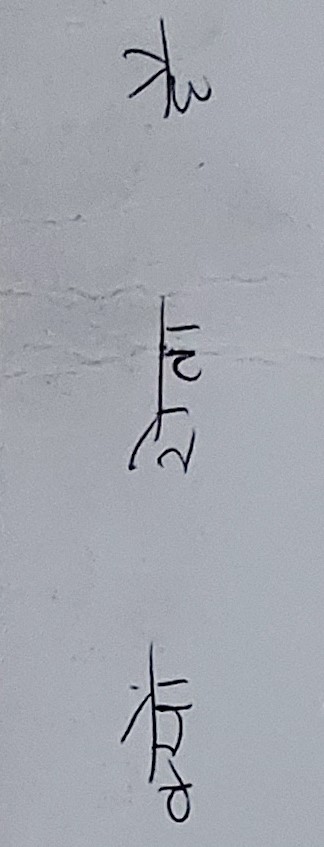 क्यों रोता है